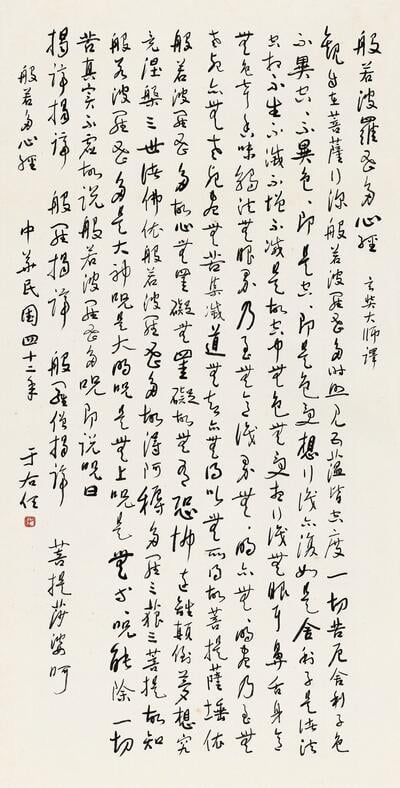 般若波羅蜜多心經 玄奘大師譯
觀自在菩薩行深般若波羅蜜多時照見五蘊皆空度一切苦厄舍利子色
不異空空不異色色即是空空即是色受想行識亦復如是舍利子是諸法
空相不生不滅不增不減是故空中無色無受想行識無眼耳鼻舌身意
無色聲香味觸法無眼界乃至無意識界無無明亦無無明盡乃至無
老死亦無老死盡無苦集滅道無智亦無得以無所得故菩提薩埵依
般若波羅蜜多故心無罣礙無罣礙故無有恐怖遠離顛倒夢想究
竟涅槃三世諸佛依般若波羅蜜多故得阿耨多羅三藐三菩提故知
般若波羅蜜多是大神咒是大明咒是無上咒是無等咒能除一切
苦真實不虛故說般若波羅蜜多咒即說咒曰
揭諦揭諦 般羅揭諦 般羅僧揭諦 菩提莎婆呵
般若多心經 中華民國四十二年 于右任